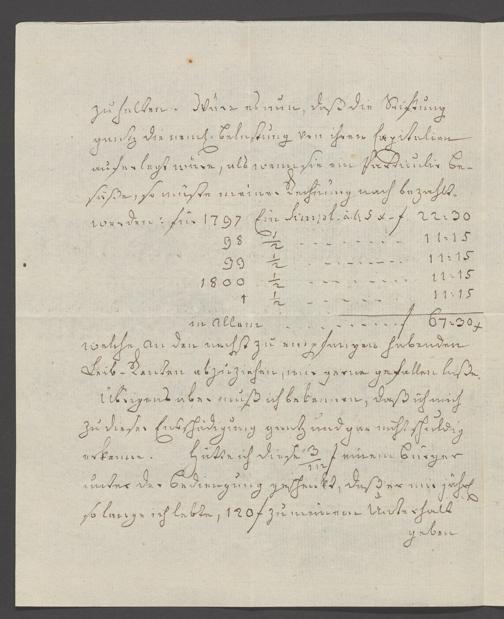 zu helfen. Wäre es nun, daß die Stiftung
gantz die nemel. Belastung von ihren Capitalien
auferlegt wäre, als wenn sie ein Particulir be-
säße, so müste meiner Rechnung nach bezahlt
werden: für 1797 Ein Simpl. à f 22:30
98 1/2 - - - - - - - 11:15
99 1/2 - - - - - - - 11:15
1800 1/2 - - - - - - - 11:15
1 1/2 - - - - - - - 11:15
in allem . . . . . . . . f 67:30
welche, an den nechst zu empfangen habenden
Leib-Renten abzuziehen, mir gerne gefallen laße.
Übrigens aber muß ich bekennen, daß ich mich
zu dieser Entschädigung gantz und gar nicht schuldig
erkenne. Hätte ich diese 3/m f einem Bürger
unter der Bediengung geschenkt, daß er mir jährl.
so lange ich lebte, 120 f zu meinem Unterhalt
geben